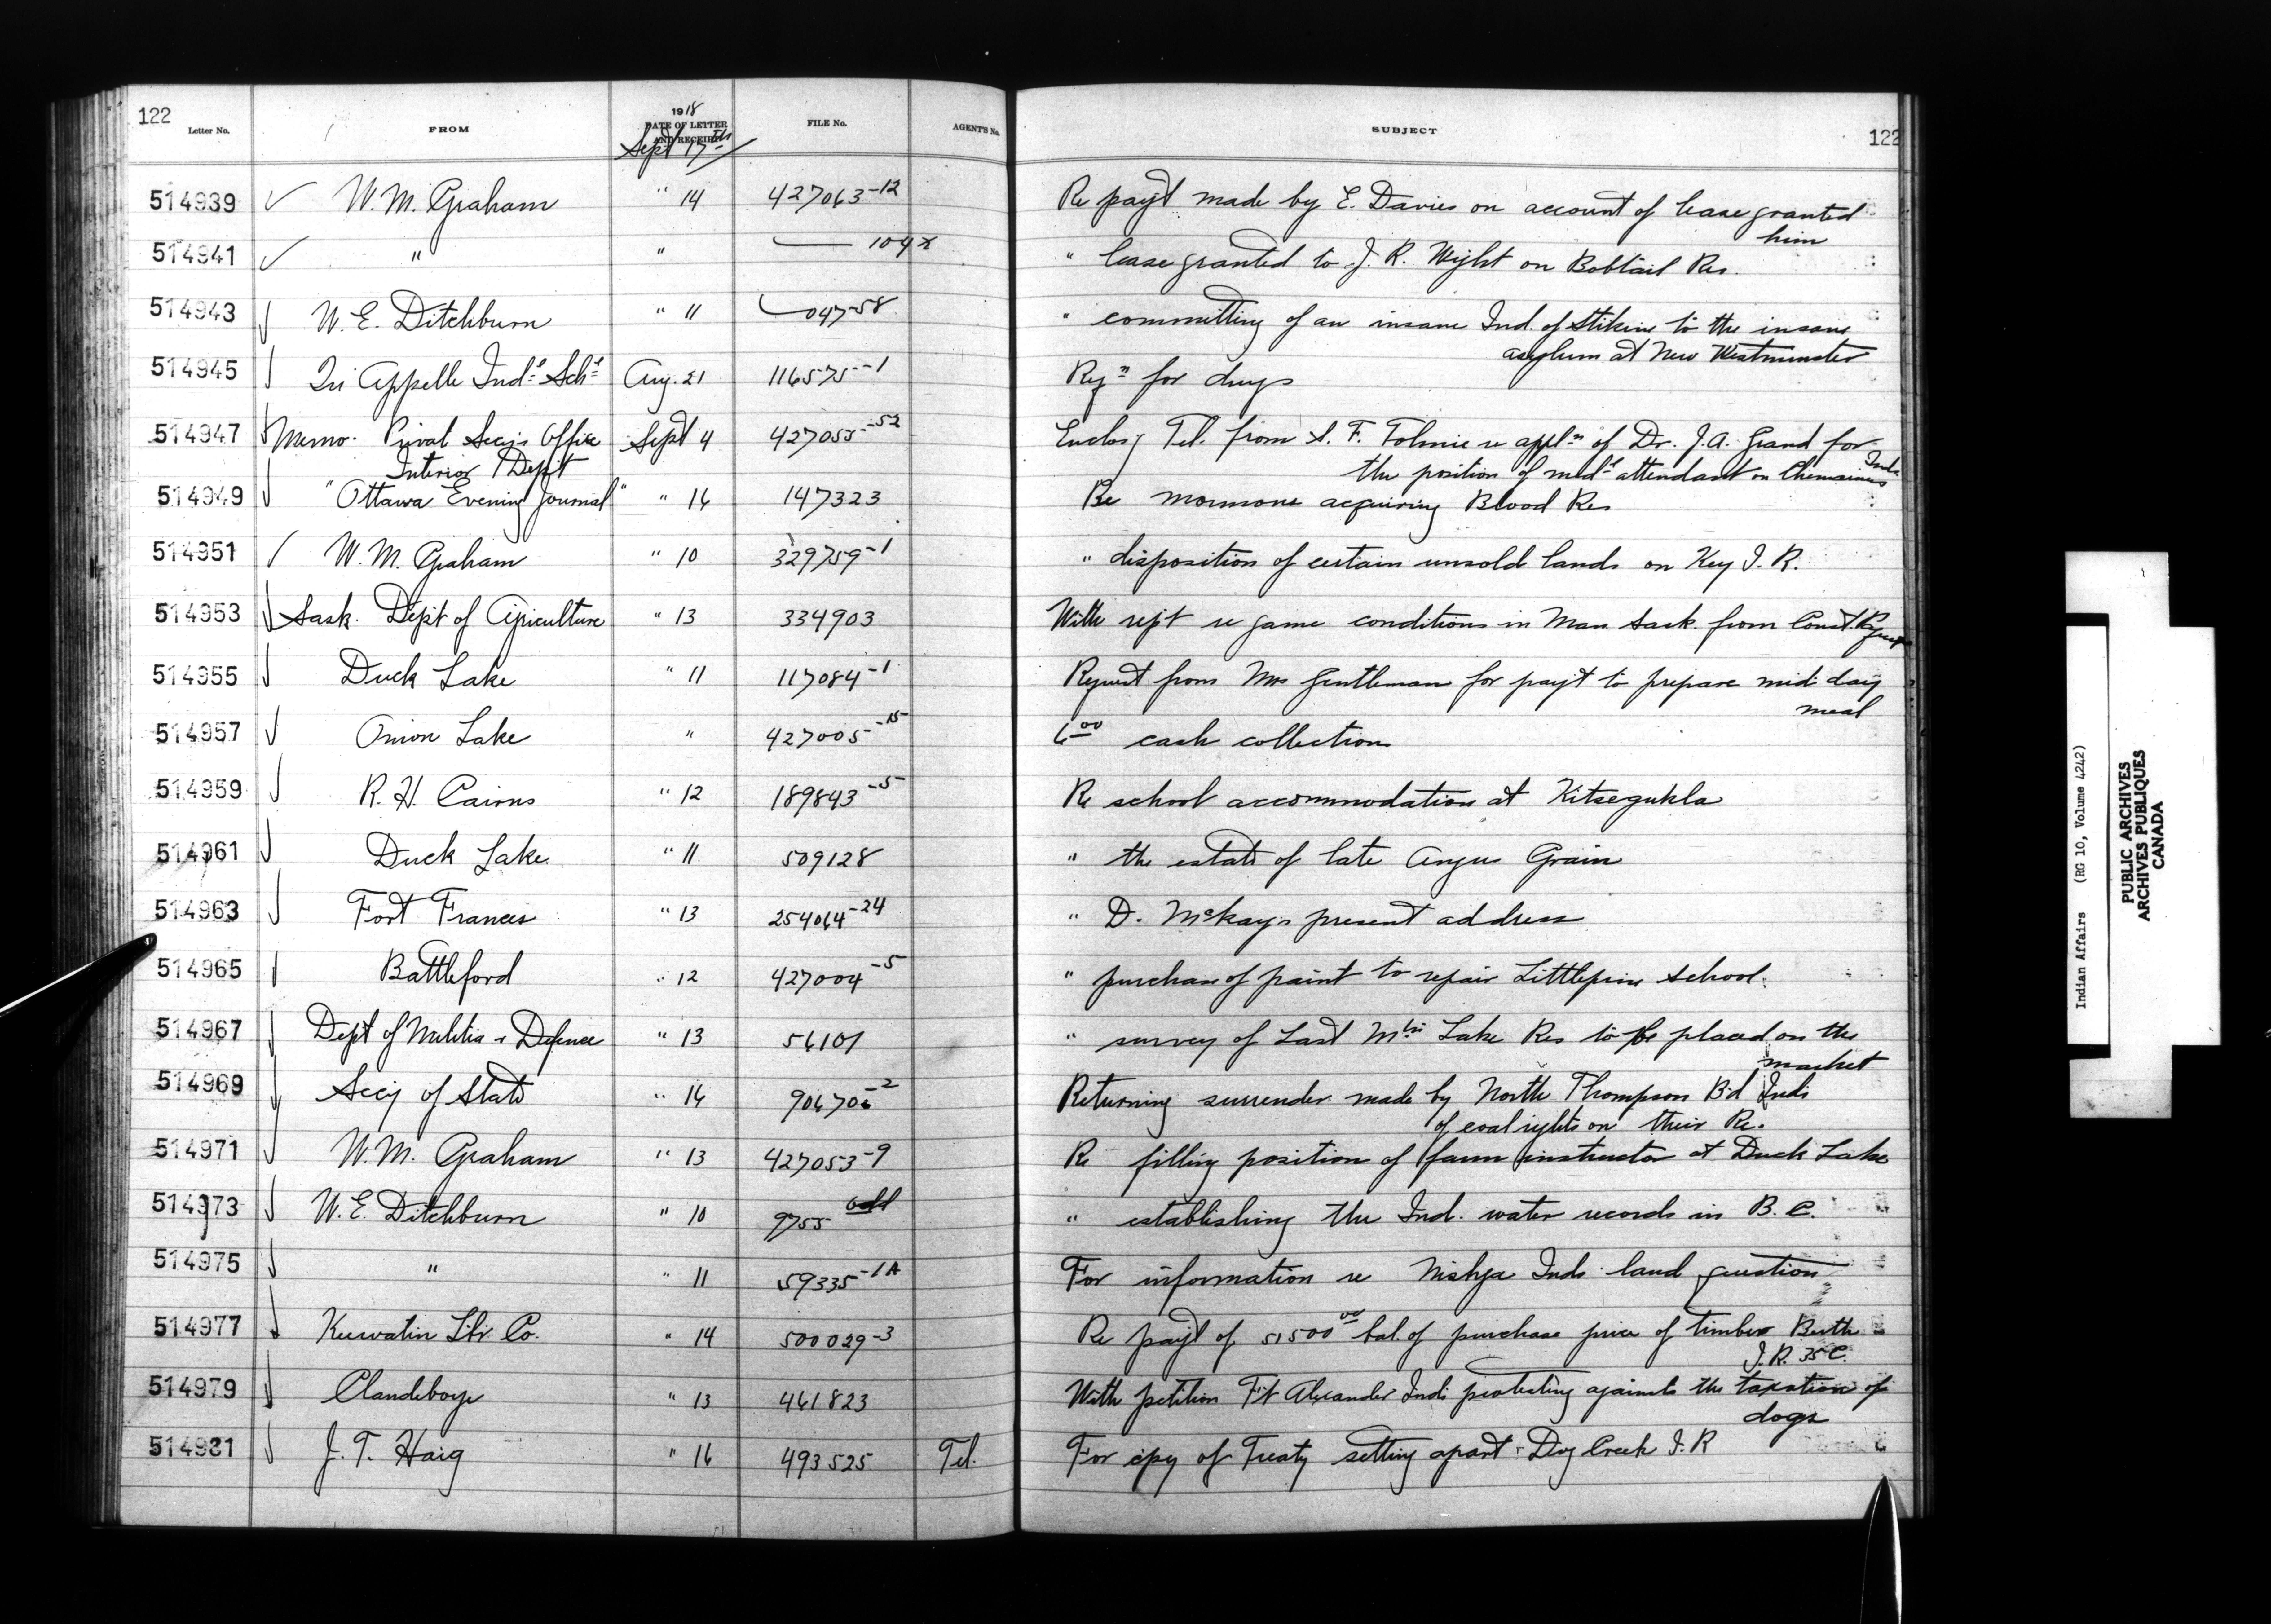 122
Letter No. FROM 1918 DATE OF LETTER AND RECEIPT FILE No. AGENT'S No. SUBJECT 122
Sept 17th
514939 W. M. Graham " 14 427063-12 Re payt made by E. Davies on account of lease granted
him
514941 " " 104x " lease granted to J. R. Wight on Bobtail Res.
514943 W. E. Ditchburn " 11 047-58 " committing of an insane Ind. of Stikine to the insane
asylum at New Westminster
514945 Qu'Appelle Indl Schl Aug. 21 116575-1 Reqn for drugs
514947 Memo. Privat Secy's Office Sept 4 427055-52 Enclosg Tel. from S. F. Tolmie re appln of Dr. J. A. Grand for
Interior Dept the position of medl attendant on Chemainus Inds
514949 "Ottawa Evening Journal" " 16 147323 Re mormons acquiring Blood Res
514951 W. M. Graham " 10 329759-1 " disposition of certain unsold lands on Key I. R.
514953 Sask. Dept of Agriculture " 13 334903 With rept re game conditions in Man Sask. from Const.
514955 Duck Lake " 11 117084-1 Request from Mrs Gentleman for payt to prepare mid day
meal
514957 Onion Lake " 427005-15 6 00 cash collections
514959 R. H. Cairns " 12 189843-5 Re school accommodation at Kitsegukla
514961 Duck Lake " 11 509128 " the estate of late Angus Grain
514963 Fort Frances " 13 254064-24 " D. McKay's present address
514965 Battleford " 12 427004-5 " purchase of paint to repair Littlepine School.
514967 Dept of Militia & Defence " 13 56101 " survey of Last Mtn Lake Res to be placed on the
market
514969 Secy of State " 16 906706-2 Returning surrender made by North Thompson Bd Inds
of coal rights on their Re.
514971 W. M. Graham " 13 427053-9 Re filling position of farm instructor at Duck Lake
514973 W. E. Ditchburn " 10 9755 odd " establishing the Ind. water records in B. C.
514975 " " 11 59335-1A For information re Nishga Inds land question
514977 Keewatin Lbr Co. " 14 500029-3 Re payt of 51500 00 bal. of purchase price of timber Berth
I. R. 35C.
514979 Clandeboye " 13 461823 With petition Ft Alexander Inds protesting against the taxation of
dogs
514981 J. T. Haig " 16 493525 Tel. For copy of Treaty setting apart Dog Creek I. R
Indian Affairs (RG 10, Volume 4242)
PUBLIC ARCHIVES
ARCHIVES PUBLIQUES
CANADA